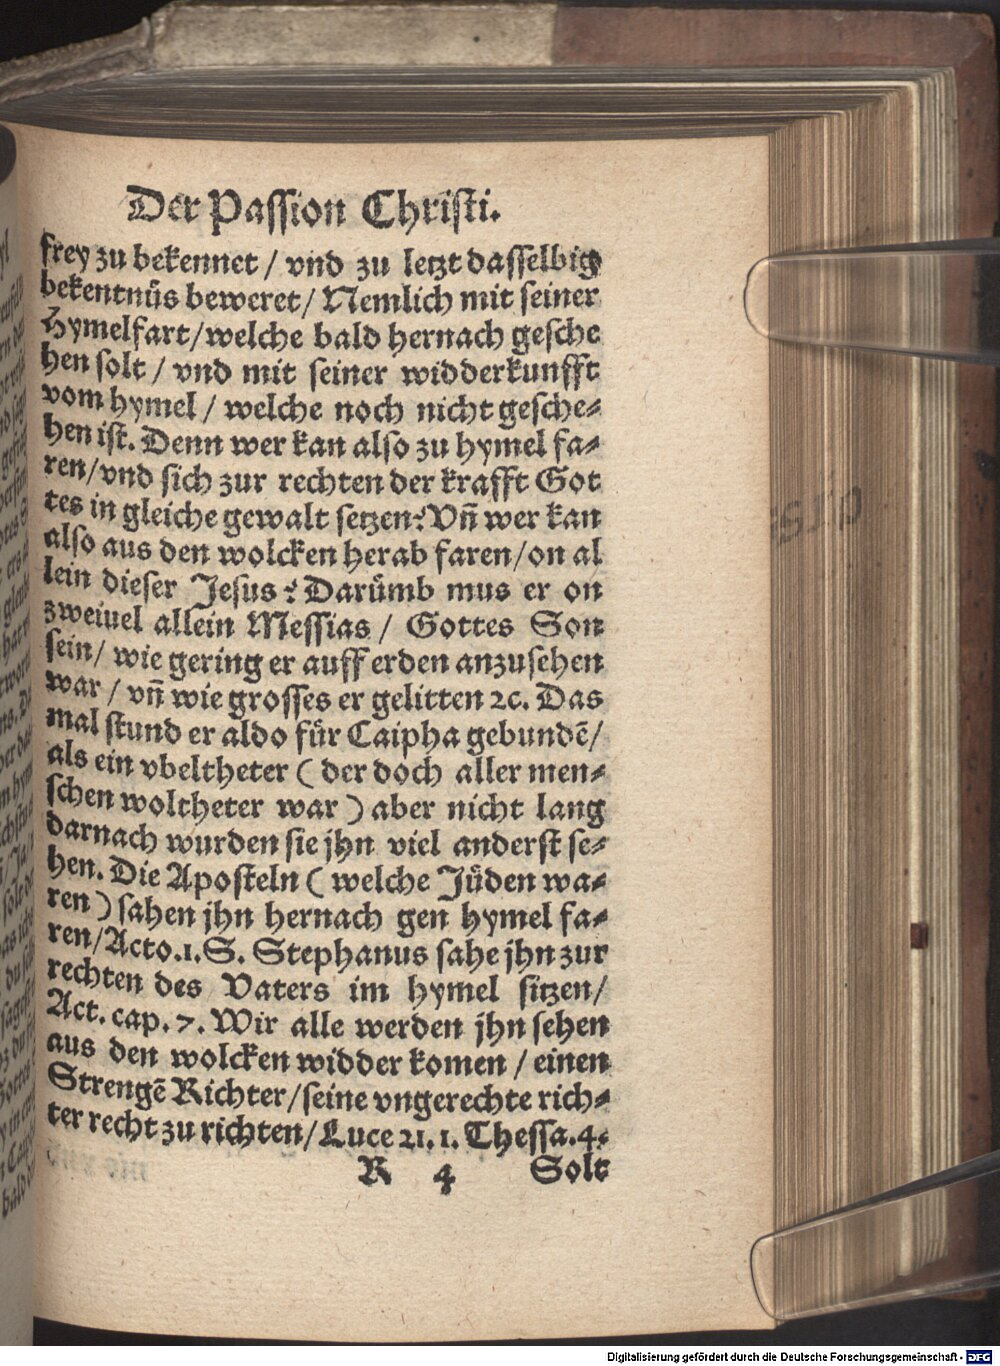 Der Passion Christi.
frey zu bekennet / vnd zu letzt dasselbig
bekentnüs beweret / Nemlich mit seiner
Hymelfart / welche bald hernach gesche
hen solt / vnd mit seiner widderkunfft
vom hymel / welche noch nicht gesche⸗
hen ist. Denn wer kan also zu hymel fa⸗
ren / vnd sich zur rechten der krafft Got
tes in gleiche gewalt setzen? Vñ wer kan
also aus den wolcken herab faren / on al
lein dieser Jesus? Darümb mus er on
zweiuel allein Messias / Gottes Son
sein / wie gering er auff erden anzusehen
war / vñ wie grosses er gelitten ꝛc. Das
mal stund er aldo für Caipha gebundē /
als ein vbeltheter ( der doch aller men⸗
schen woltheter war ) aber nicht lang
darnach wurden sie jhn viel anderst se⸗
hen. Die Aposteln ( welche Jüden wa⸗
ren ) sahen jhn hernach gen hymel fa⸗
ren / Acto.1. S. Stephanus sahe jhn zur
rechten des Vaters im hymel sitzen /
Act. cap. 7. Wir alle werden jhn sehen
aus den wolcken widder komen / einen
Strengē Richter / seine vngerechte rich⸗
ter recht zu richten / Luce 21. 1. Thessa. 4.
R 4 Solt
Digitalisierung gefördert durch die Deutsche Forschungsgemeinschaft - DFG